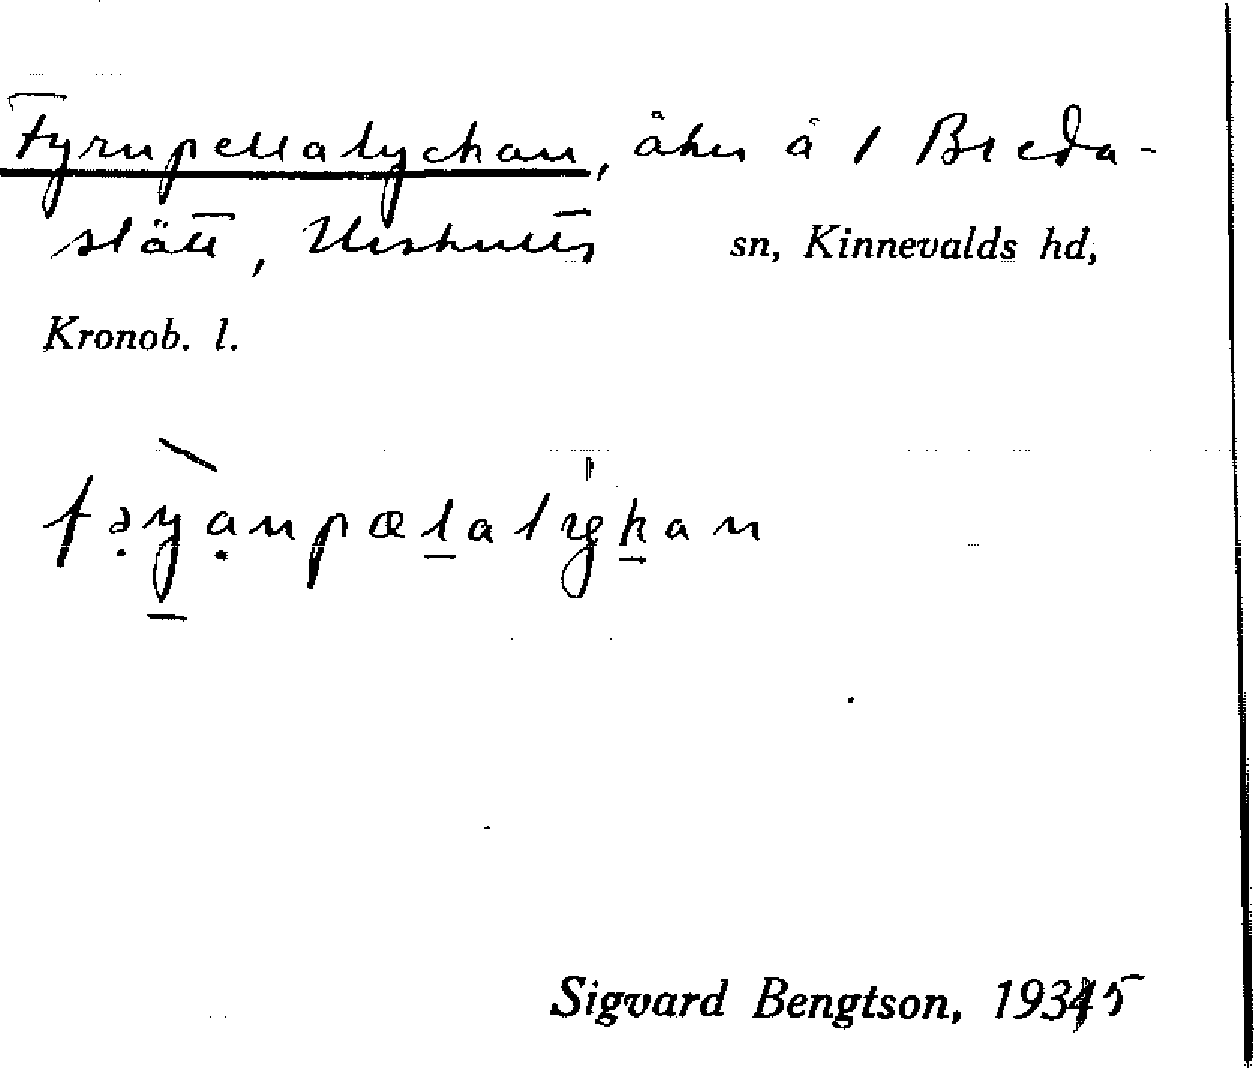 Fyrupellalyckan, åker å 1 Breda-
slätt, Urshults sn, Kinnevalds hd,
Kronob. l.
Sigvard Bengtson, 1935